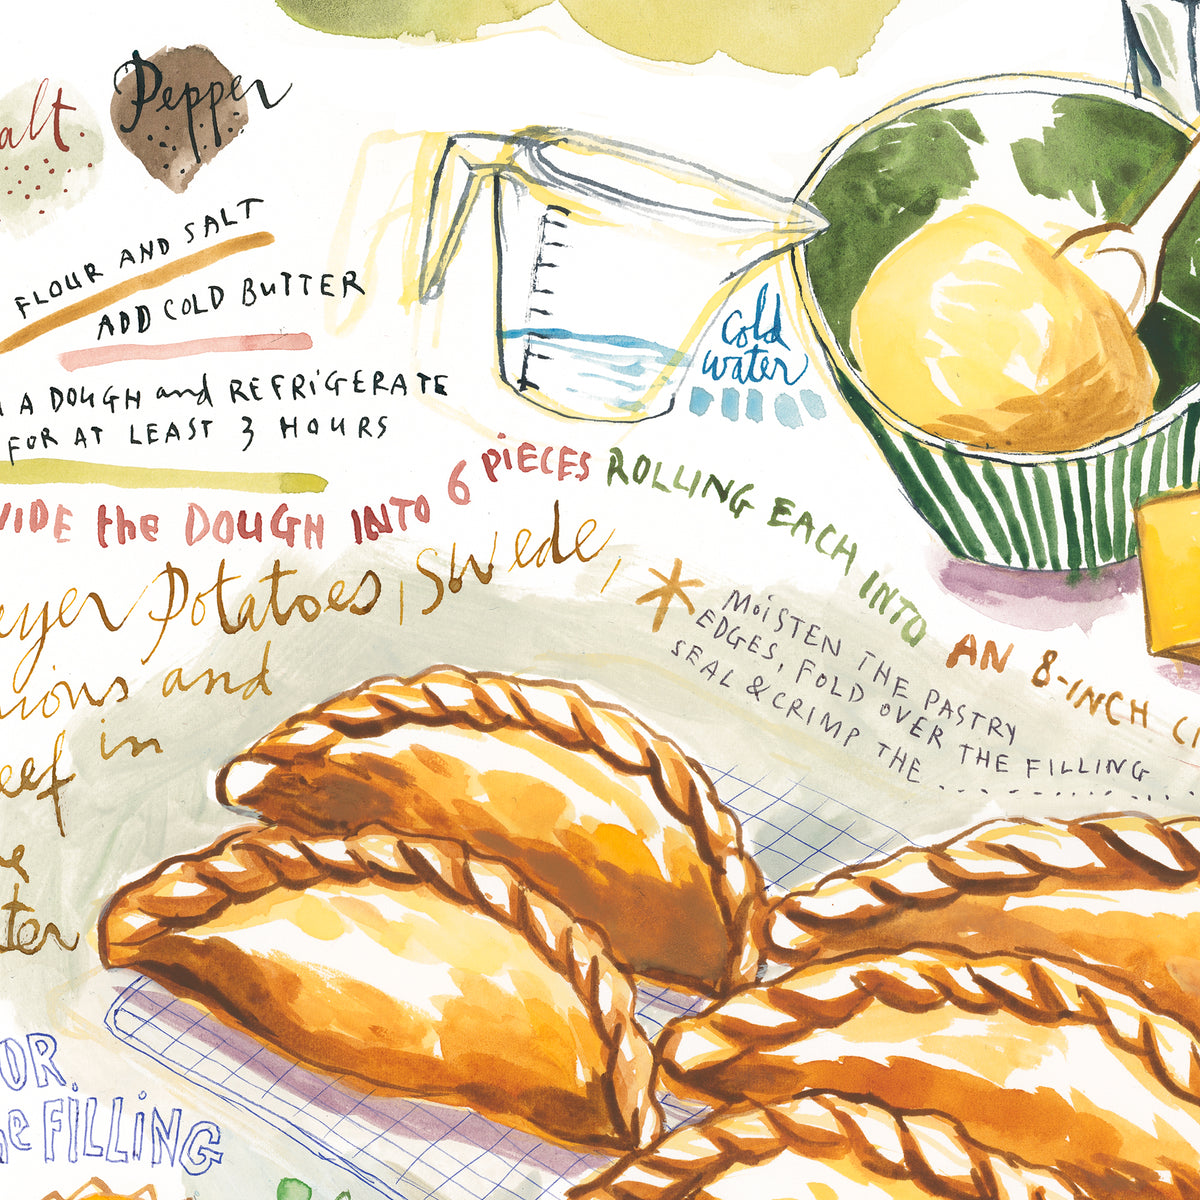 alt.
Pepper
FLOUR AND SALT
ADD COLD BUTTER
A DOUGH and REFRiGERATE
FOR AT LEAST 3 HOURS
Cold
water
VIDE the DOUGH INTO 6 PiECES ROLLING EACH INTO AN 8-INCH CI
eyer Potatoes, Swede,
nions and
eef in
ter
* MOiSTEN THE PASTRY
EDGES, FOLD OVER THE FILLING
SEAL & CRIMP THE ...............
FOR
he FiLLiNG